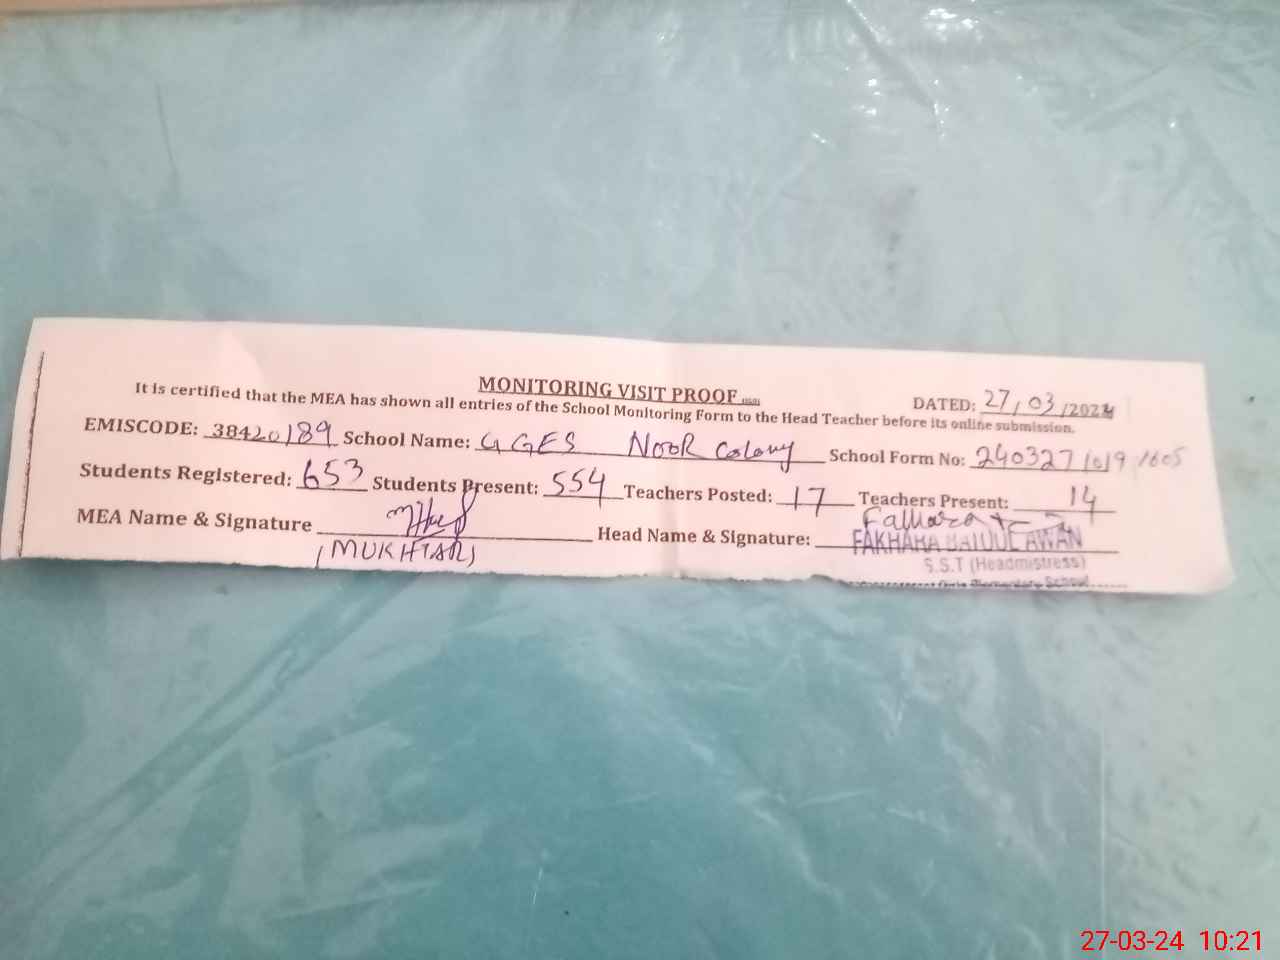 MONITORING VISIT PROOF
DATED: 27/03/2024
It is certified that the MEA has shown all entries of the School Monitoring Form to the Head Teacher before its online submission.
EMISCODE: 38420189 School Name: GGES Noor Colony School Form No: 2403271019 1605
Students Registered: 653 Students Present: 554 Teachers Posted: 17 Teachers Present: 14
MEA Name & Signature (MUKHTAR) Head Name & Signature: FAKHARA AWAN
S.S.T (Headmistress)
Girls Elementary School
27-03-24 10:21